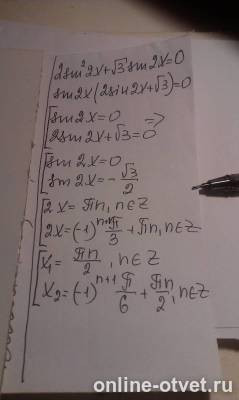 2sin²2x+√3 sin2x=0
sin2x(2sin2x+√3)=0
[sin2x=0 =>
2sin2x+√3=0
[sin2x=0
sin2x=-√3/2
[2x=πn, n∈Z
2x=(-1)ⁿ⁺¹ π/3 + πn, n∈Z
[x₁=πn/2, n∈Z
x₂=(-1)ⁿ⁺¹ π/6 + πn/2, n∈Z
online-otvet.ru